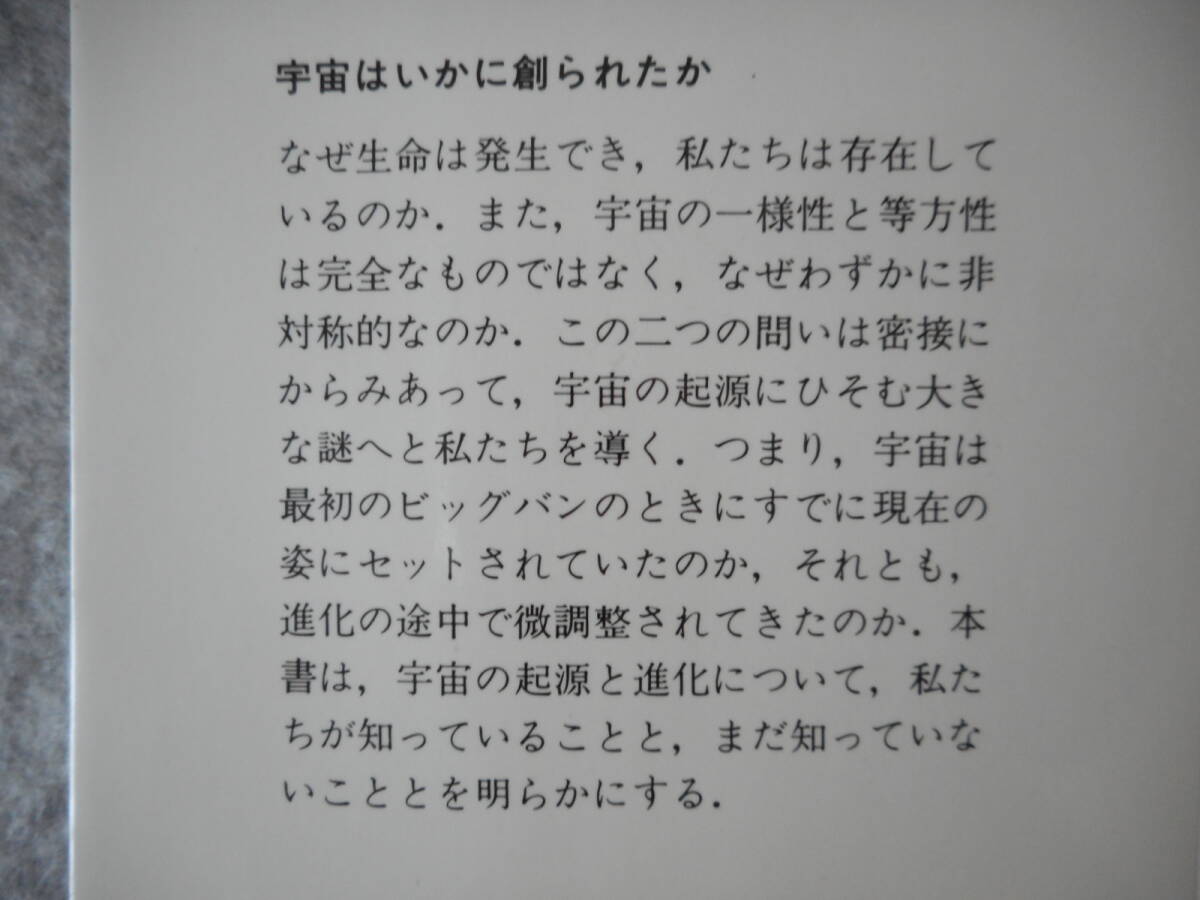 宇宙はいかに創られたか
なぜ生命は発生でき，私たちは存在して
いるのか．また，宇宙の一様性と等方性
は完全なものではなく，なぜわずかに非
対称的なのか．この二つの問いは密接に
からみあって，宇宙の起源にひそむ大き
な謎へと私たちを導く．つまり，宇宙は
最初のビッグバンのときにすでに現在の
姿にセットされていたのか，それとも，
進化の途中で微調整されてきたのか．本
書は，宇宙の起源と進化について，私た
ちが知っていることと，まだ知っていな
いこととを明らかにする．